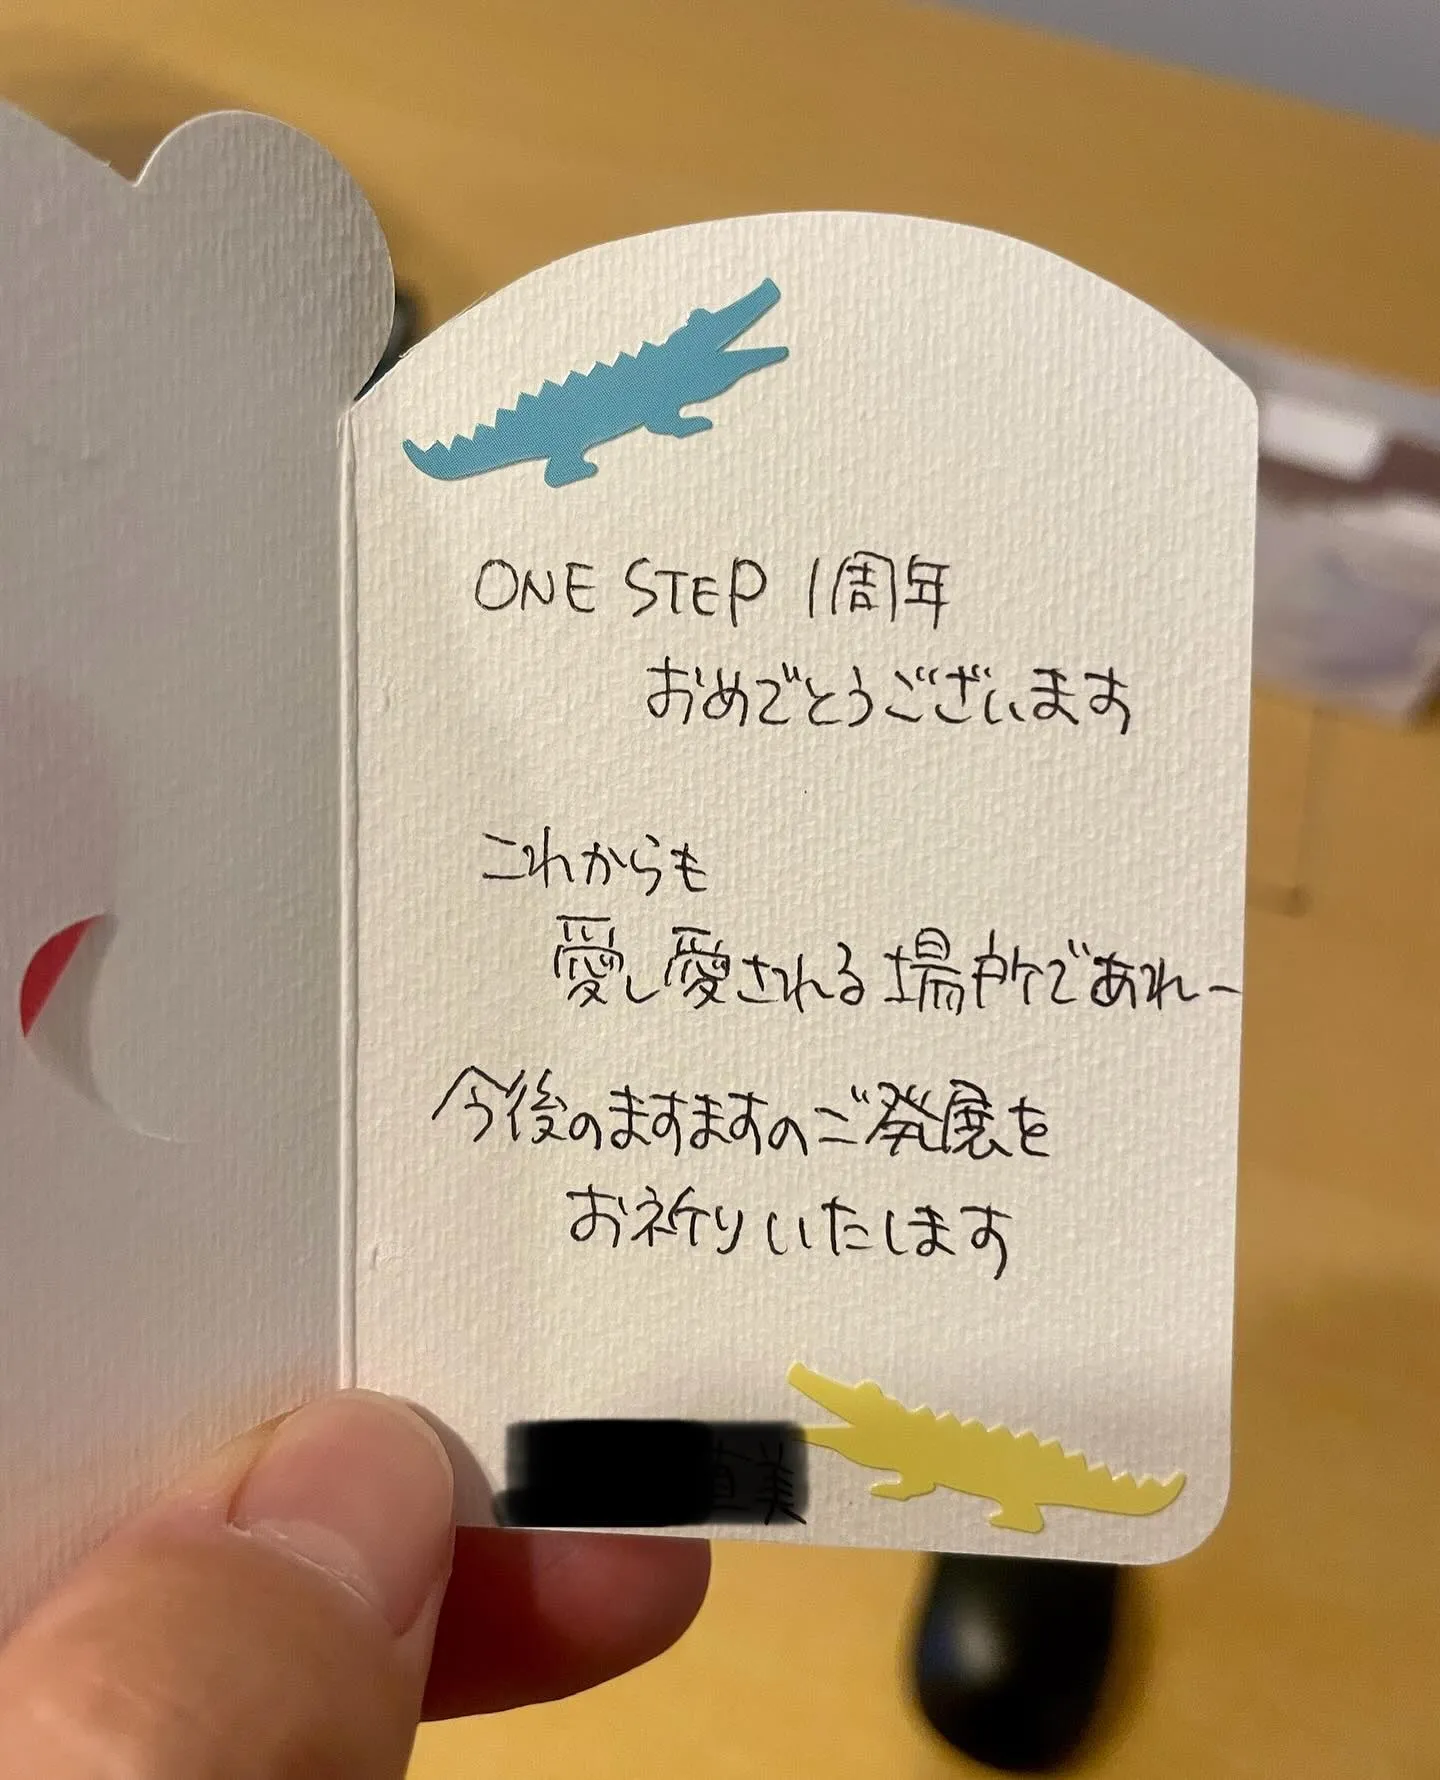 ONE STEP 1周年
おめでとうございます
これからも
愛し愛される場所であれー
今後のますますのご発展を
お祈りいたします